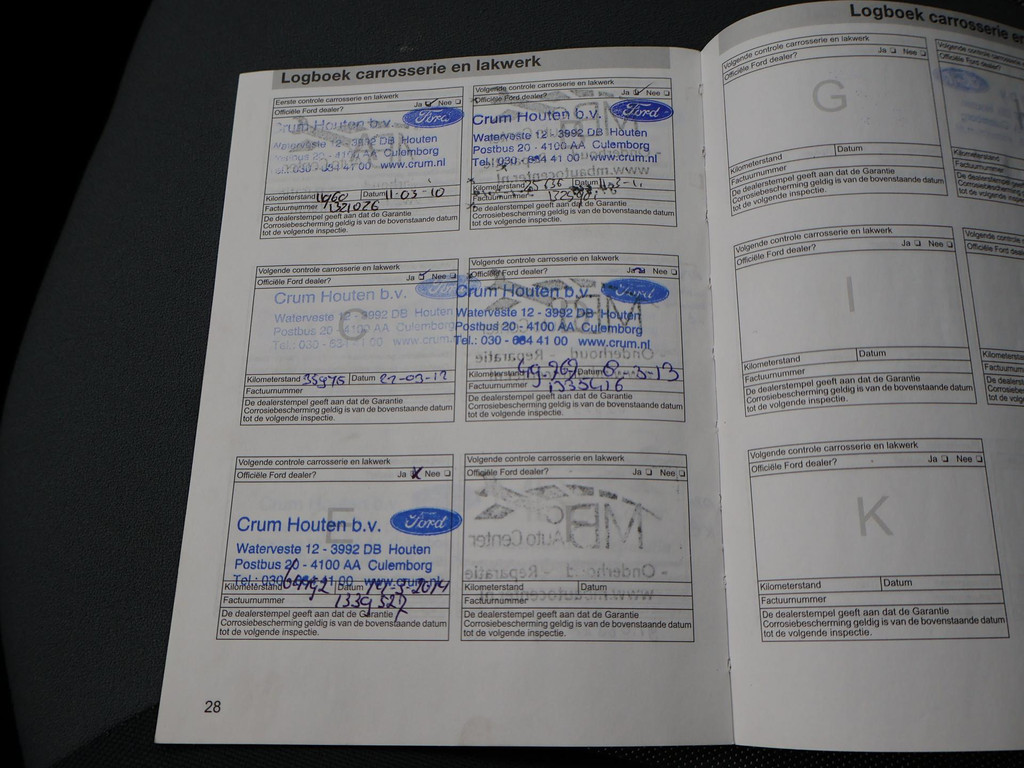 Logboek carrosserie en lakwerk
Eerste controle carrosserie en lakwerk
Officiële Ford dealer? Ja Nee
Ford
Crum Houten b.v.
Waterveste 12 - 3992 DB Houten
Postbus 20 - 4100 AA Culemborg
Tel.: 030 - 634 41 00 www.crum.nl
Kilometerstand Datum 11-03-10
Factuurnummer 1321026
De dealerstempel geeft aan dat de Garantie
Corrosiebescherming geldig is van bovenstaande datum
tot de volgende inspectie.
Volgende controle carrosserie en lakwerk
Officiële Ford dealer? Ja Nee
Ford
Crum Houten b.v.
Waterveste 12 - 3992 DB Houten
Postbus 20 - 4100 AA Culemborg
Tel.: 030 - 634 41 00 www.crum.nl
Kilometerstand Datum
Factuurnummer
De dealerstempel geeft aan dat de Garantie
Corrosiebescherming geldig is van de bovenstaande datum
tot de volgende inspectie.
Volgende controle carrosserie en lakwerk
Officiële Ford dealer? Ja Nee
C
Crum Houten b.v.
Waterveste 12 - 3992 DB Houten
Postbus 20 - 4100 AA Culemborg
Tel.: 030 - 634 41 00 www.crum.nl
Kilometerstand 35975 Datum 27-03-12
Factuurnummer
De dealerstempel geeft aan dat de Garantie
Corrosiebescherming geldig is van de bovenstaande datum
tot de volgende inspectie.
Volgende controle carrosserie en lakwerk
Officiële Ford dealer? Ja Nee
Ford
Crum Houten b.v.
Waterveste 12 - 3992 DB Houten
Postbus 20 - 4100 AA Culemborg
Tel.: 030 - 634 41 00 www.crum.nl
Kilometerstand 49.969 Datum 8-3-13
Factuurnummer 1335616
De dealerstempel geeft aan dat de Garantie
Corrosiebescherming geldig is van de bovenstaande datum
tot de volgende inspectie.
Volgende controle carrosserie en lakwerk
Officiële Ford dealer? Ja Nee
E
Crum Houten b.v. Ford
Waterveste 12 - 3992 DB Houten
Postbus 20 - 4100 AA Culemborg
Tel.: 030 - 634 41 00 www.crum.nl
Kilometerstand Datum
Factuurnummer 1339522
De dealerstempel geeft aan dat de Garantie
Corrosiebescherming geldig is van de bovenstaande datum
tot de volgende inspectie.
Volgende controle carrosserie en lakwerk
Officiële Ford dealer? Ja Nee
Kilometerstand Datum
Factuurnummer
De dealerstempel geeft aan dat de Garantie
Corrosiebescherming geldig is van de bovenstaande datum
tot de volgende inspectie.
28
Logboek carrosserie en
Volgende controle carrosserie en lakwerk
Officiële Ford dealer? Ja Nee
G
Kilometerstand Datum
Factuurnummer
De dealerstempel geeft aan dat de Garantie
Corrosiebescherming geldig is van de bovenstaande datum
tot de volgende inspectie.
Volgende controle carrosserie en lakwerk
Officiële Ford dealer? Ja Nee
I
Kilometerstand Datum
Factuurnummer
De dealerstempel geeft aan dat de Garantie
Corrosiebescherming geldig is van de bovenstaande datum
tot de volgende inspectie.
Volgende controle carrosserie en lakwerk
Officiële Ford dealer? Ja Nee
K
Kilometerstand Datum
Factuurnummer
De dealerstempel geeft aan dat de Garantie
Corrosiebescherming geldig is van de bovenstaande datum
tot de volgende inspectie.